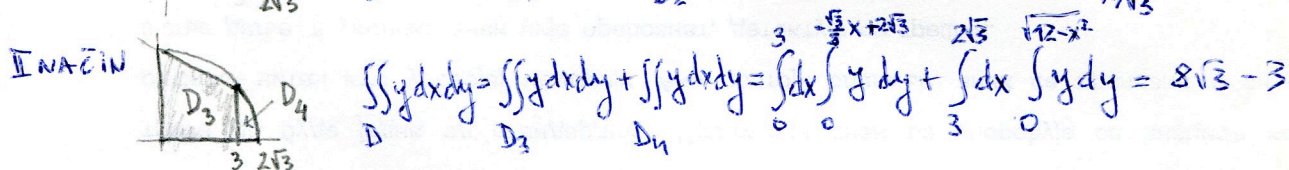 2√3
II NAČIN D₃ D₄ 3 2√3 ∬_D y dx dy = ∬_{D₃} y dx dy + ∬_{D₄} y dx dy = ∫_0^3 dx ∫_0^{-\frac{√3}{3}x+2√3} y dy + ∫_3^{2√3} dx ∫_0^{√(12-x²)} y dy = 8√3 - 3